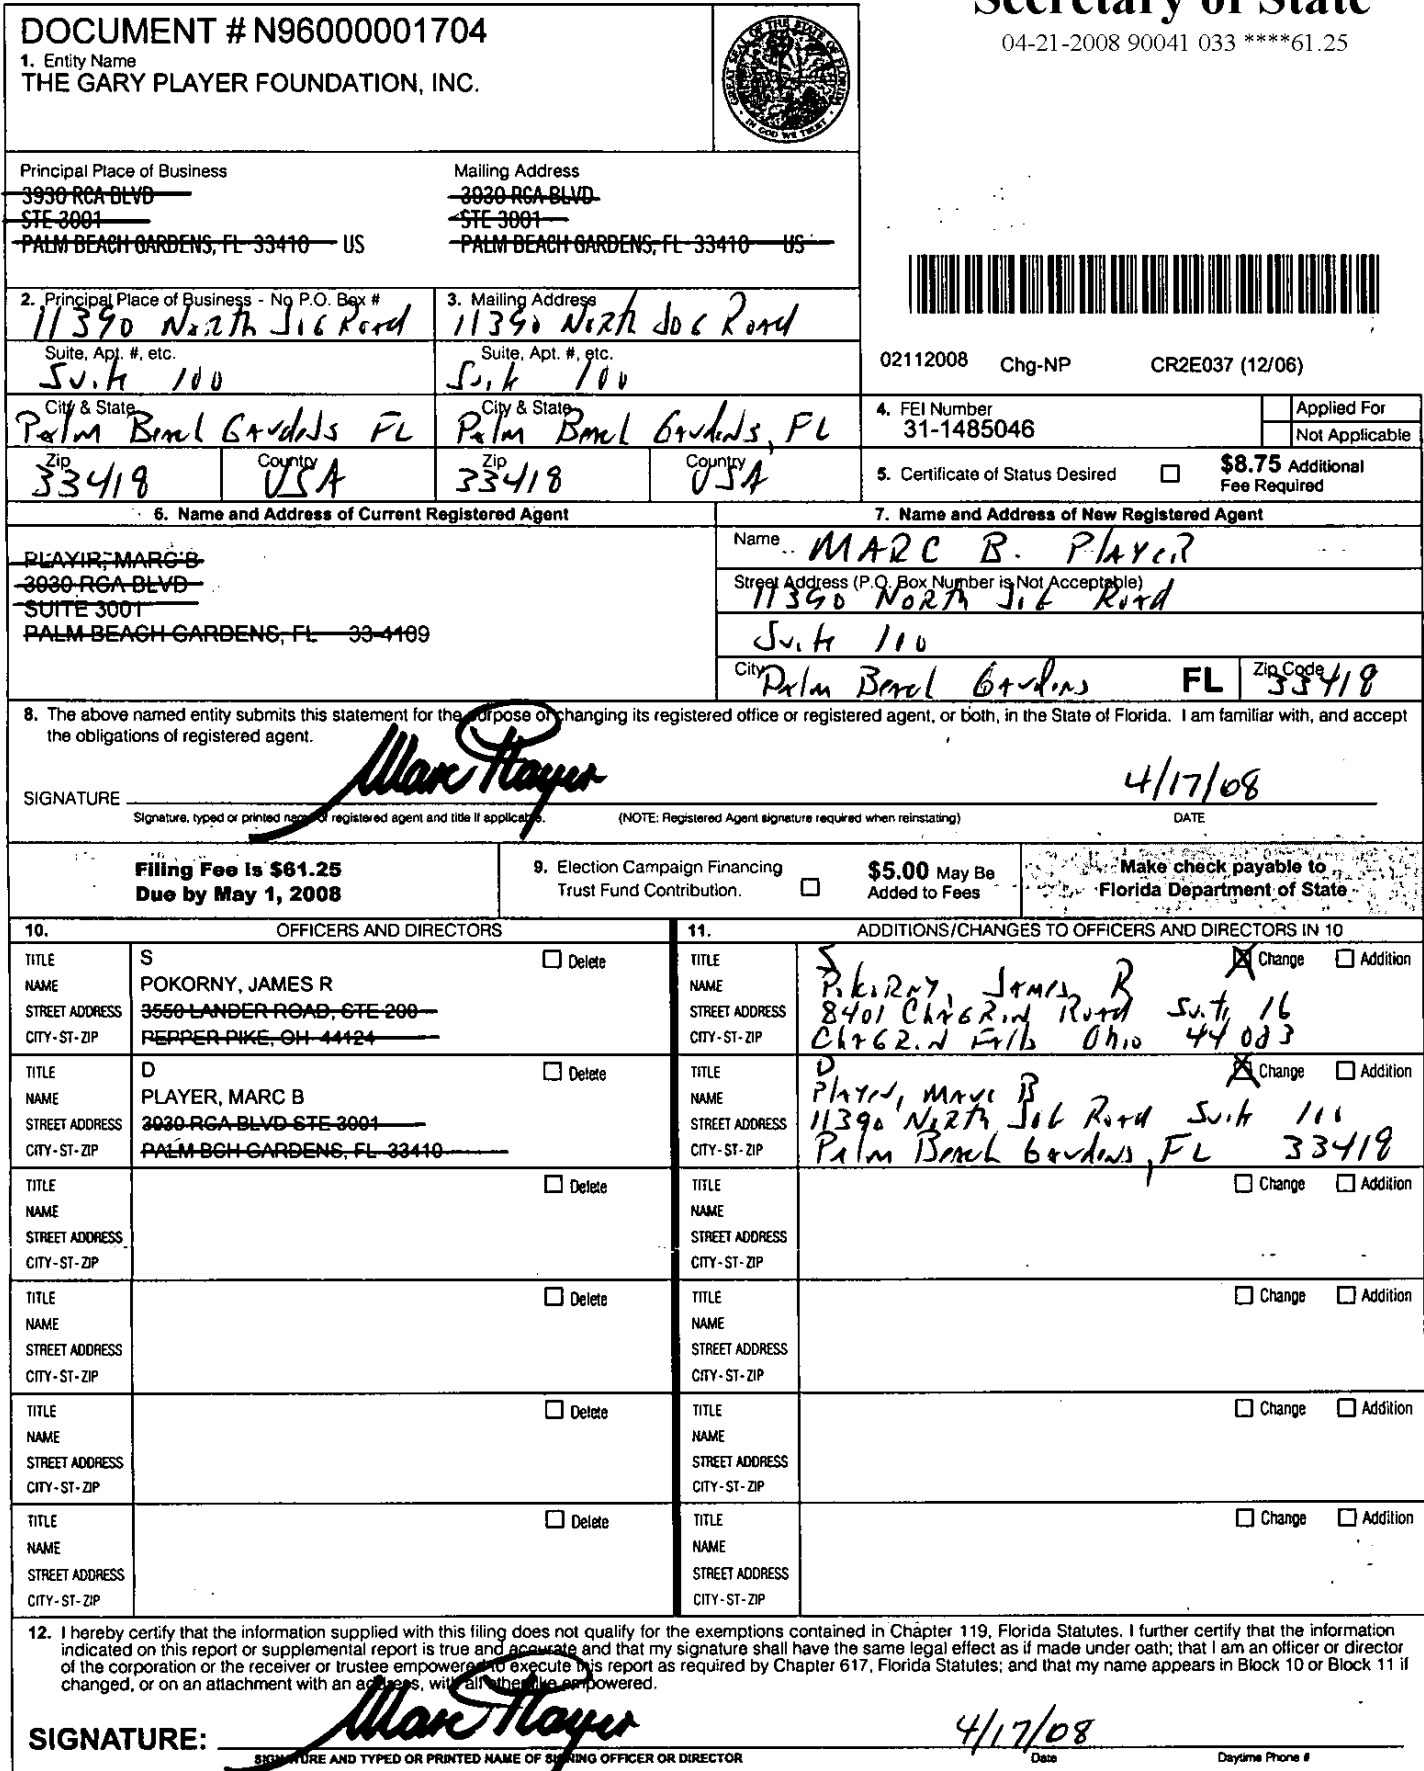 Secretary of State
04-21-2008 90041 033 ****61.25
DOCUMENT # N96000001704
1. Entity Name
THE GARY PLAYER FOUNDATION, INC.
GREAT SEAL OF THE STATE OF FLORIDA
IN GOD WE TRUST
Principal Place of Business
3930 RCA BLVD
STE 3001
PALM BEACH GARDENS, FL 33410 US
Mailing Address
3930 RCA BLVD
STE 3001
PALM BEACH GARDENS, FL 33410 US
2. Principal Place of Business - No P.O. Box #
11390 North Jog Road
Suite, Apt. #, etc.
Suite 100
City & State
Palm Beach Gardens FL
Zip
33418
Country
USA
3. Mailing Address
11390 North Jog Road
Suite, Apt. #, etc.
Suite 100
City & State
Palm Beach Gardens, FL
Zip
33418
Country
USA
02112008 Chg-NP CR2E037 (12/06)
4. FEI Number
31-1485046
Applied For
Not Applicable
5. Certificate of Status Desired
$8.75 Additional
Fee Required
6. Name and Address of Current Registered Agent
PLAYIR, MARC B
3930 RCA BLVD
SUITE 3001
PALM BEACH GARDENS, FL 33-4109
7. Name and Address of New Registered Agent
Name MARC B. Player
Street Address (P.O. Box Number is Not Acceptable)
11390 North Jog Road
Suite 100
City Palm Beach Gardens FL Zip Code 33418
8. The above named entity submits this statement for the purpose of changing its registered office or registered agent, or both, in the State of Florida. I am familiar with, and accept
the obligations of registered agent.
SIGNATURE Marc Player 4/17/08
Signature, typed or printed name of registered agent and title if applicable. (NOTE: Registered Agent signature required when reinstating) DATE
Filing Fee is $61.25
Due by May 1, 2008
9. Election Campaign Financing
Trust Fund Contribution.
$5.00 May Be
Added to Fees
Make check payable to
Florida Department of State
10. OFFICERS AND DIRECTORS
TITLE S Delete
NAME POKORNY, JAMES R
STREET ADDRESS 3550 LANDER ROAD, STE 200
CITY-ST-ZIP PEPPER PIKE, OH 44124
TITLE D Delete
NAME PLAYER, MARC B
STREET ADDRESS 3930 RCA BLVD STE 3001
CITY-ST-ZIP PALM BCH GARDENS, FL 33410
TITLE Delete
NAME
STREET ADDRESS
CITY-ST-ZIP
TITLE Delete
NAME
STREET ADDRESS
CITY-ST-ZIP
TITLE Delete
NAME
STREET ADDRESS
CITY-ST-ZIP
TITLE Delete
NAME
STREET ADDRESS
CITY-ST-ZIP
11. ADDITIONS/CHANGES TO OFFICERS AND DIRECTORS IN 10
TITLE S Change Addition
NAME Pokorny, James R
STREET ADDRESS 8401 Chagrin Road Suite 16
CITY-ST-ZIP Chagrin Falls Ohio 44023
TITLE D Change Addition
NAME Player, Marc B
STREET ADDRESS 11390 North Jog Road Suite 100
CITY-ST-ZIP Palm Beach Gardens, FL 33418
TITLE Change Addition
NAME
STREET ADDRESS
CITY-ST-ZIP
TITLE Change Addition
NAME
STREET ADDRESS
CITY-ST-ZIP
TITLE Change Addition
NAME
STREET ADDRESS
CITY-ST-ZIP
TITLE Change Addition
NAME
STREET ADDRESS
CITY-ST-ZIP
12. I hereby certify that the information supplied with this filing does not qualify for the exemptions contained in Chapter 119, Florida Statutes. I further certify that the information
indicated on this report or supplemental report is true and accurate and that my signature shall have the same legal effect as if made under oath; that I am an officer or director
of the corporation or the receiver or trustee empowered to execute this report as required by Chapter 617, Florida Statutes; and that my name appears in Block 10 or Block 11 if
changed, or on an attachment with an address, with all other like empowered.
SIGNATURE: Marc Player 4/17/08
SIGNATURE AND TYPED OR PRINTED NAME OF SIGNING OFFICER OR DIRECTOR Date Daytime Phone #